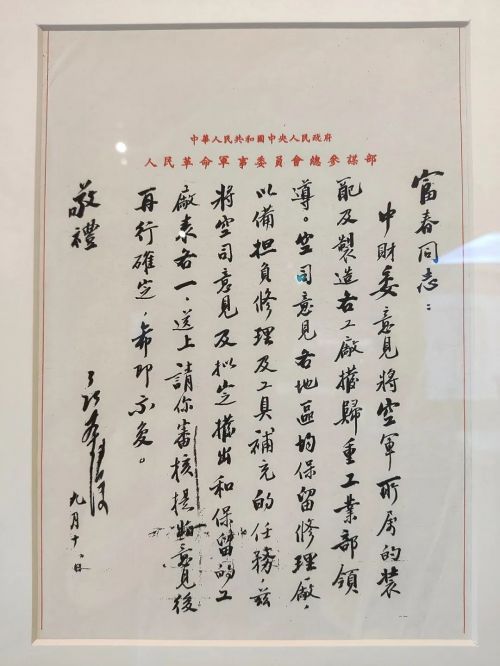 中華人民共和國中央人民政府
人民革命軍事委員會總參謀部
富春同志：
中財委意見將空軍所屬的裝
配及製造各工廠撥歸重工業部領
導。空司意見各地區均保留修理廠，
以備担負修理及工具補充的任務，茲
將空司意見及拟定撥出和保留的工
廠表各一，送上請你審核提出意見後
再行確定，希即示复。
敬禮
九月十八日